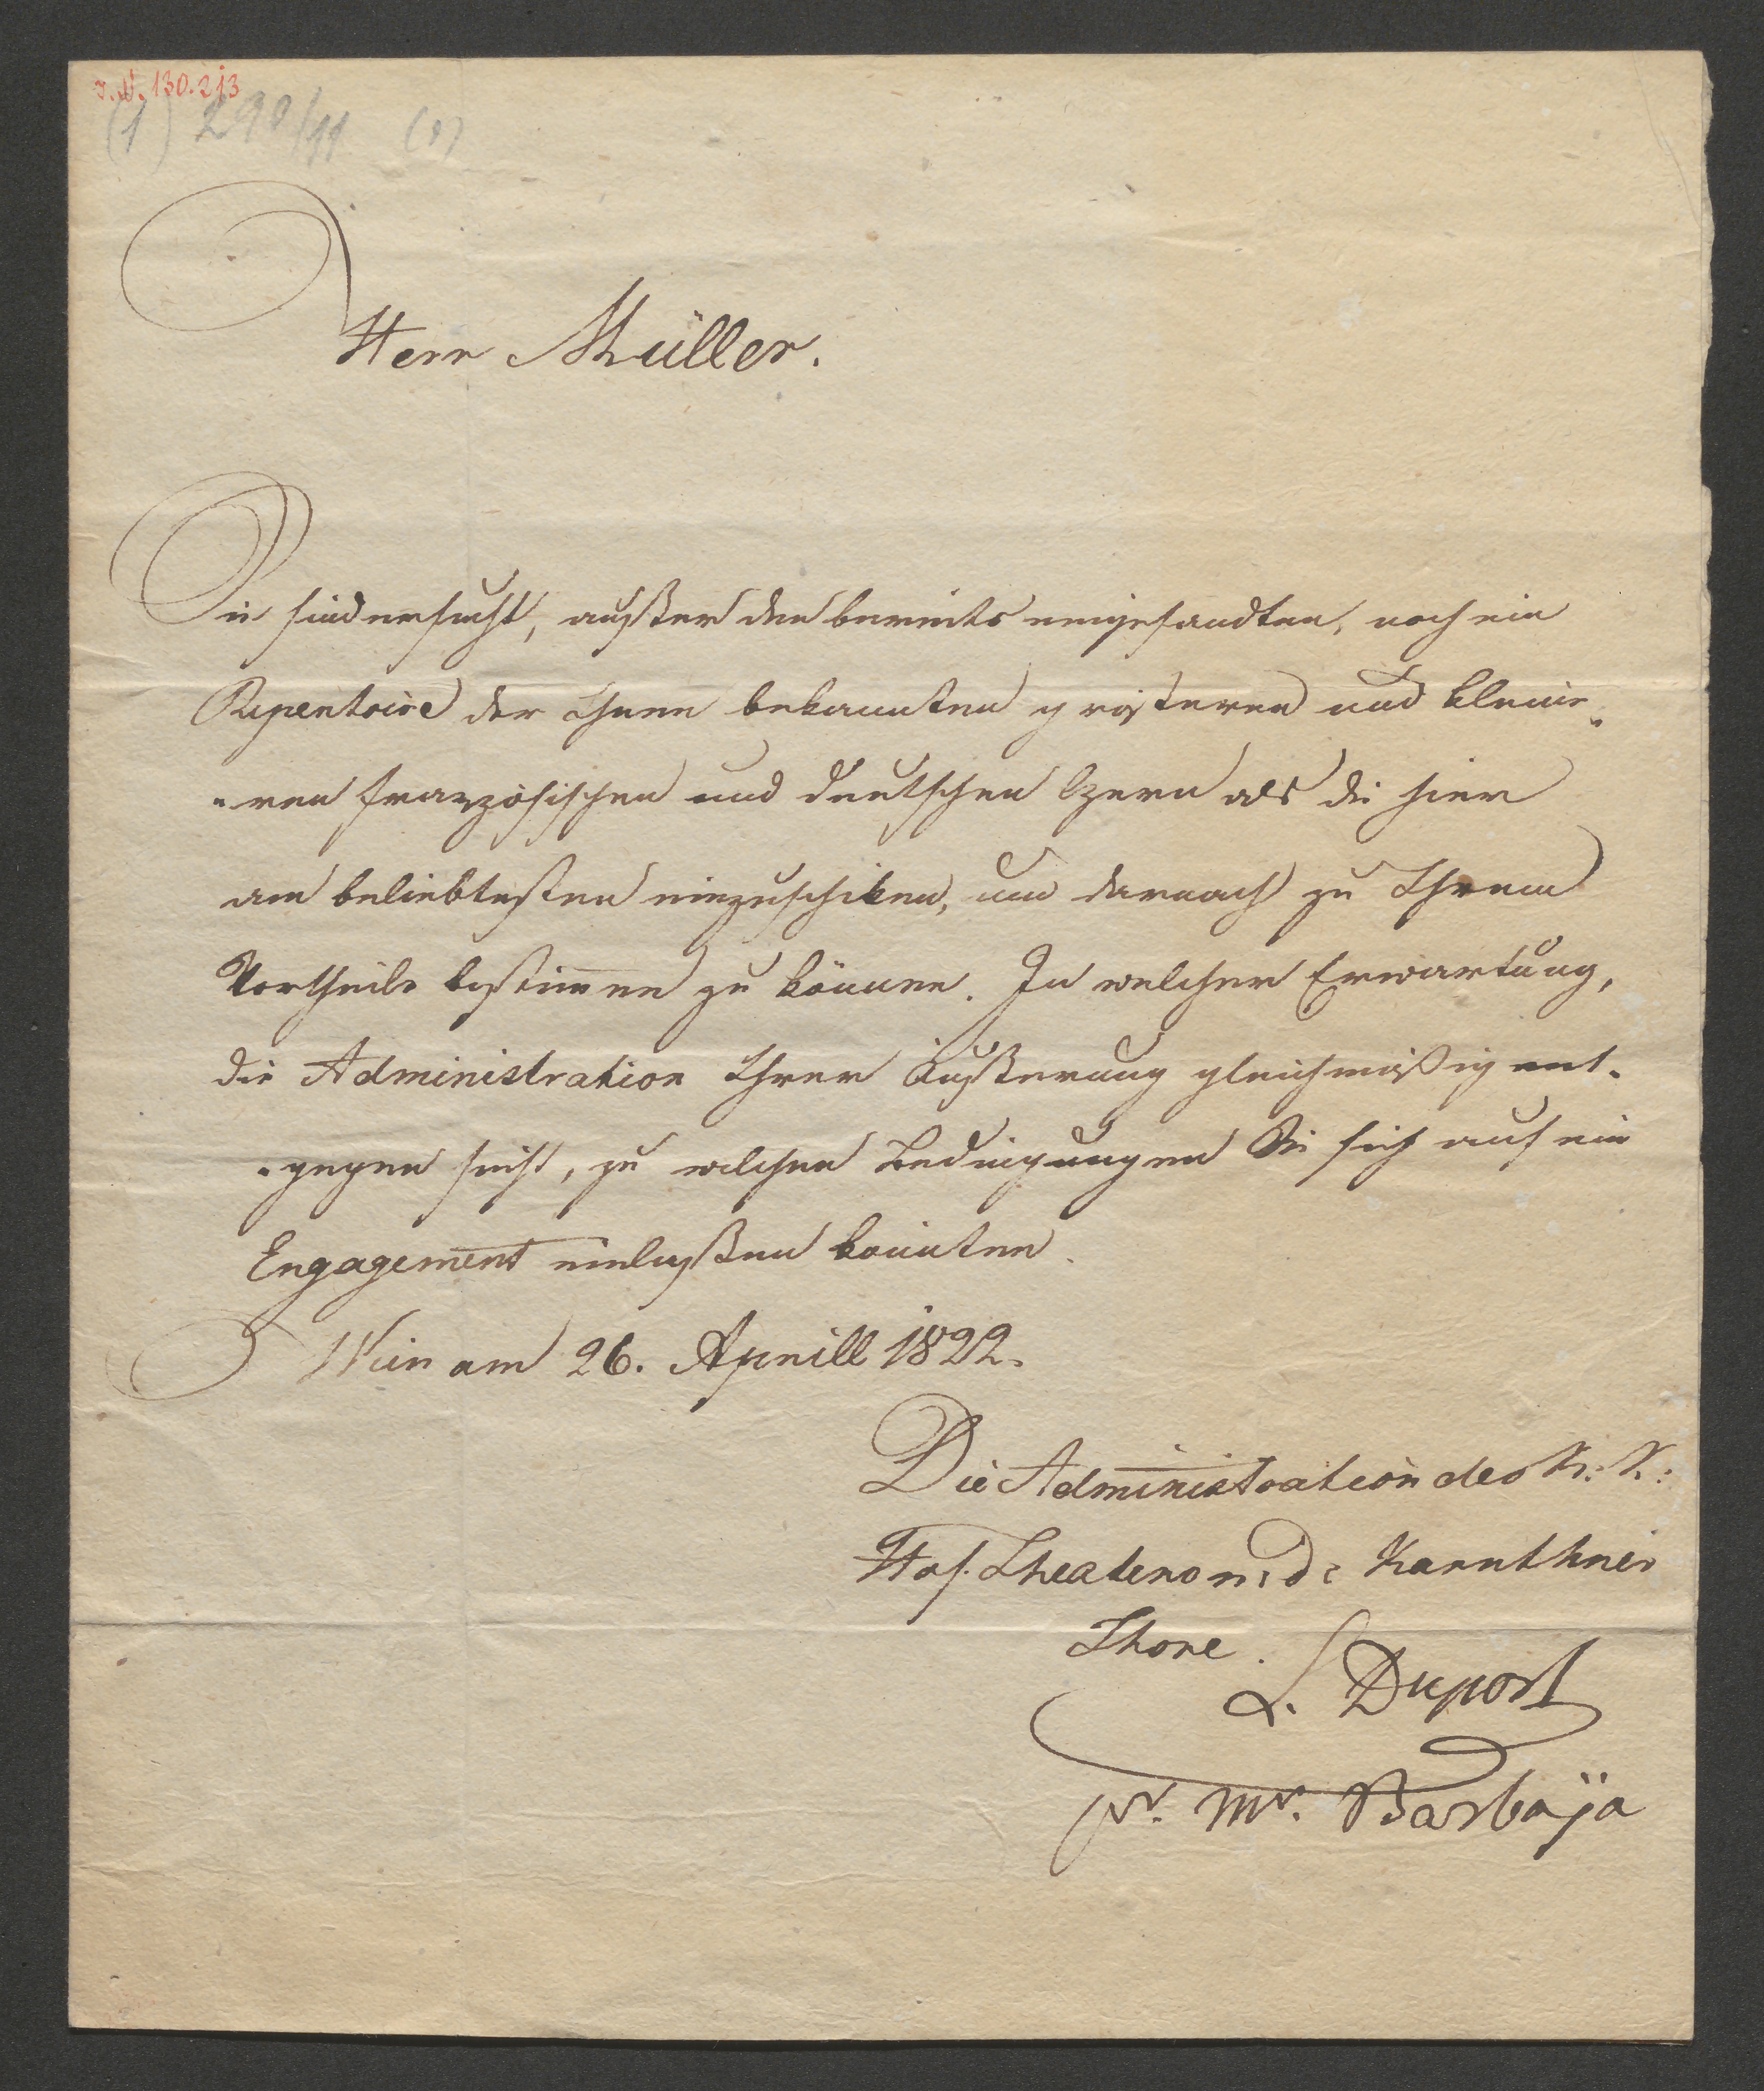 I.N. 130.213
(1) 290/11 (1)
Herr Müller.
Sie sind ersucht, außer den bereits eingesandten, noch ein
Repertoire der Ihnen bekannten grösteren und kleine-
-ren französischen und deutschen Opern als die hier
am beliebtesten einzuschiken, um darnach zu Ihrem
Vortheile bestimmen zu können. In welcher Erwartung,
die Administration Ihrer Äußerung gleichmäßig ent-
-gegen sieht, zu welchen Bedingungen Sie sich auf ein
Engagement einlaßen könnten.
Wien am 26. Aprill 1822.
Die Administration des K. K.
Hof. Theaters n. d. Karnthner
Thore.
L. Duport
pr. Mr. Barbaja